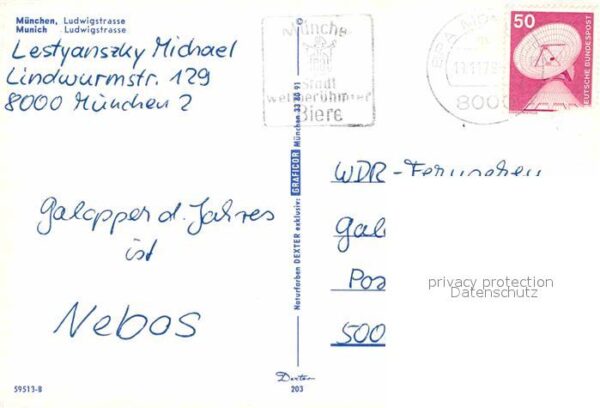 München, Ludwigstrasse
Munich Ludwigstrasse
Lestyanszky Michael
Lindwurmstr. 129
8000 München 2
Münche
Stadt
weltberühmter
Biere
11.11.79
8000
50
DEUTSCHE BUNDESPOST
Galopper d. Jahres
ist
Nebos
Naturfarben DEXTER exklusiv: GRAFICOR München 33 80 91
WDR-Fernsehen
Gal
Pos
500
privacy protection
Datenschutz
59513-8
Dexter
203